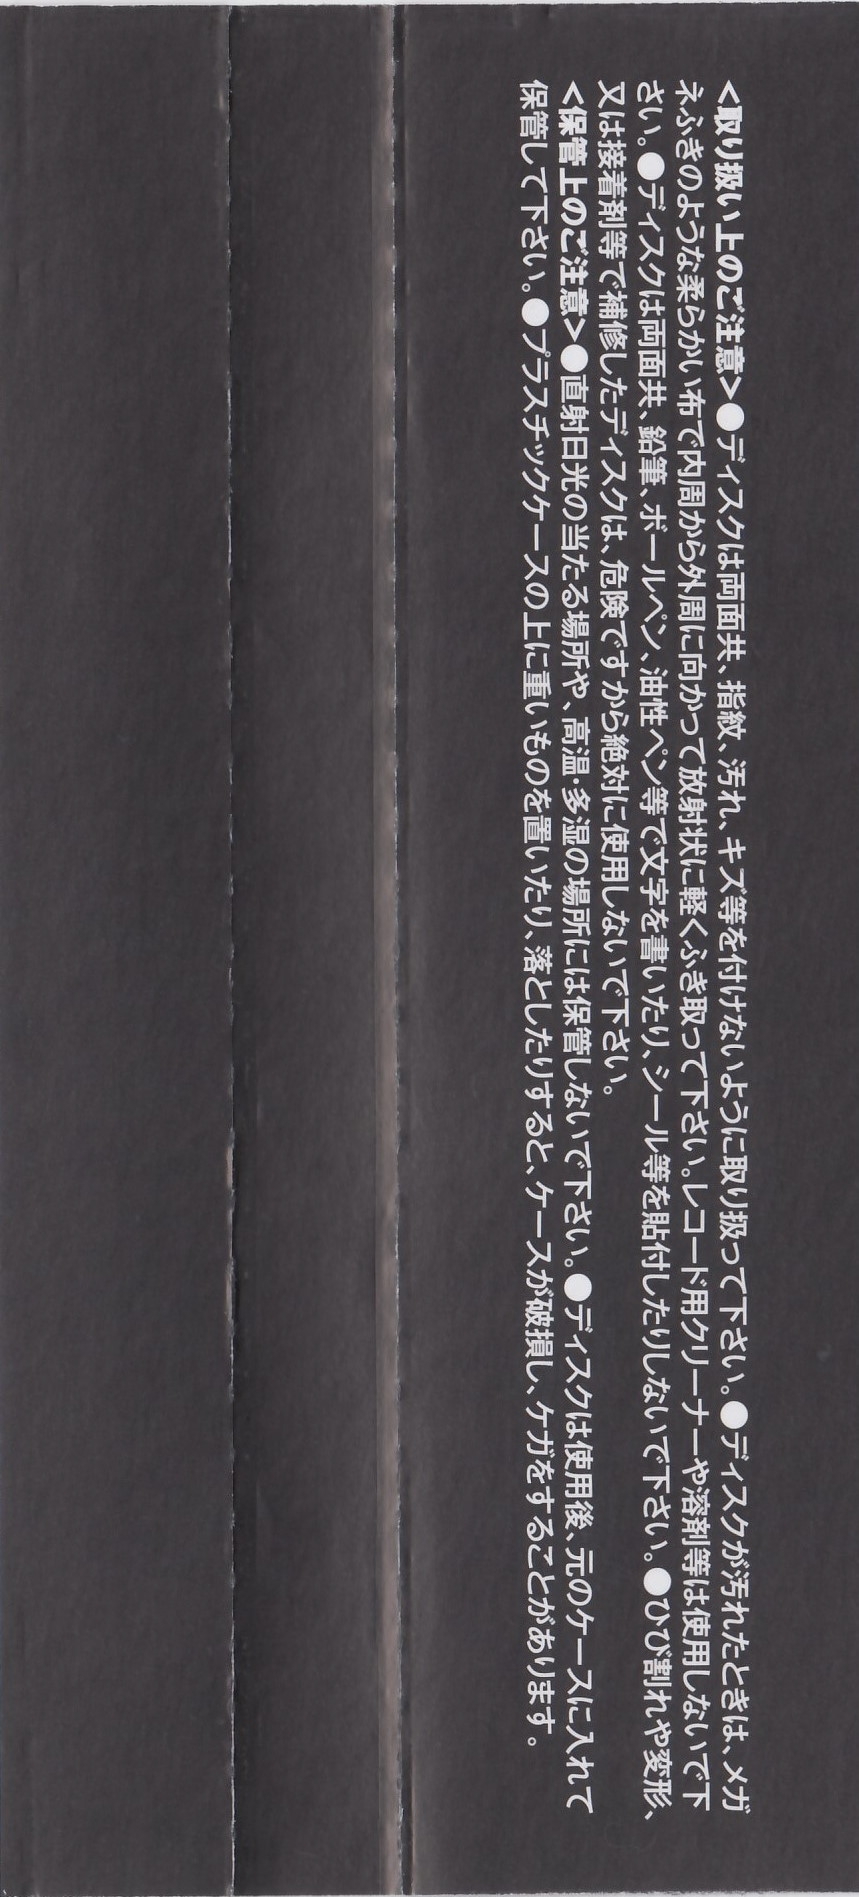 <取り扱い上のご注意>●ディスクは両面共、指紋、汚れ、キズ等を付けないように取り扱って下さい。●ディスクが汚れたときは、メガ
ネふきのような柔らかい布で内周から外周に向かって放射状に軽くふき取って下さい。レコード用クリーナーや溶剤等は使用しないで下
さい。●ディスクは両面共、鉛筆、ボールペン、油性ペン等で文字を書いたり、シール等を貼付したりしないで下さい。●ひび割れや変形、
又は接着剤等で補修したディスクは、危険ですから絶対に使用しないで下さい。
<保管上のご注意>●直射日光の当たる場所や、高温・多湿の場所には保管しないで下さい。●ディスクは使用後、元のケースに入れて
保管して下さい。●プラスチックケースの上に重いものを置いたり、落としたりすると、ケースが破損し、ケガをすることがあります。